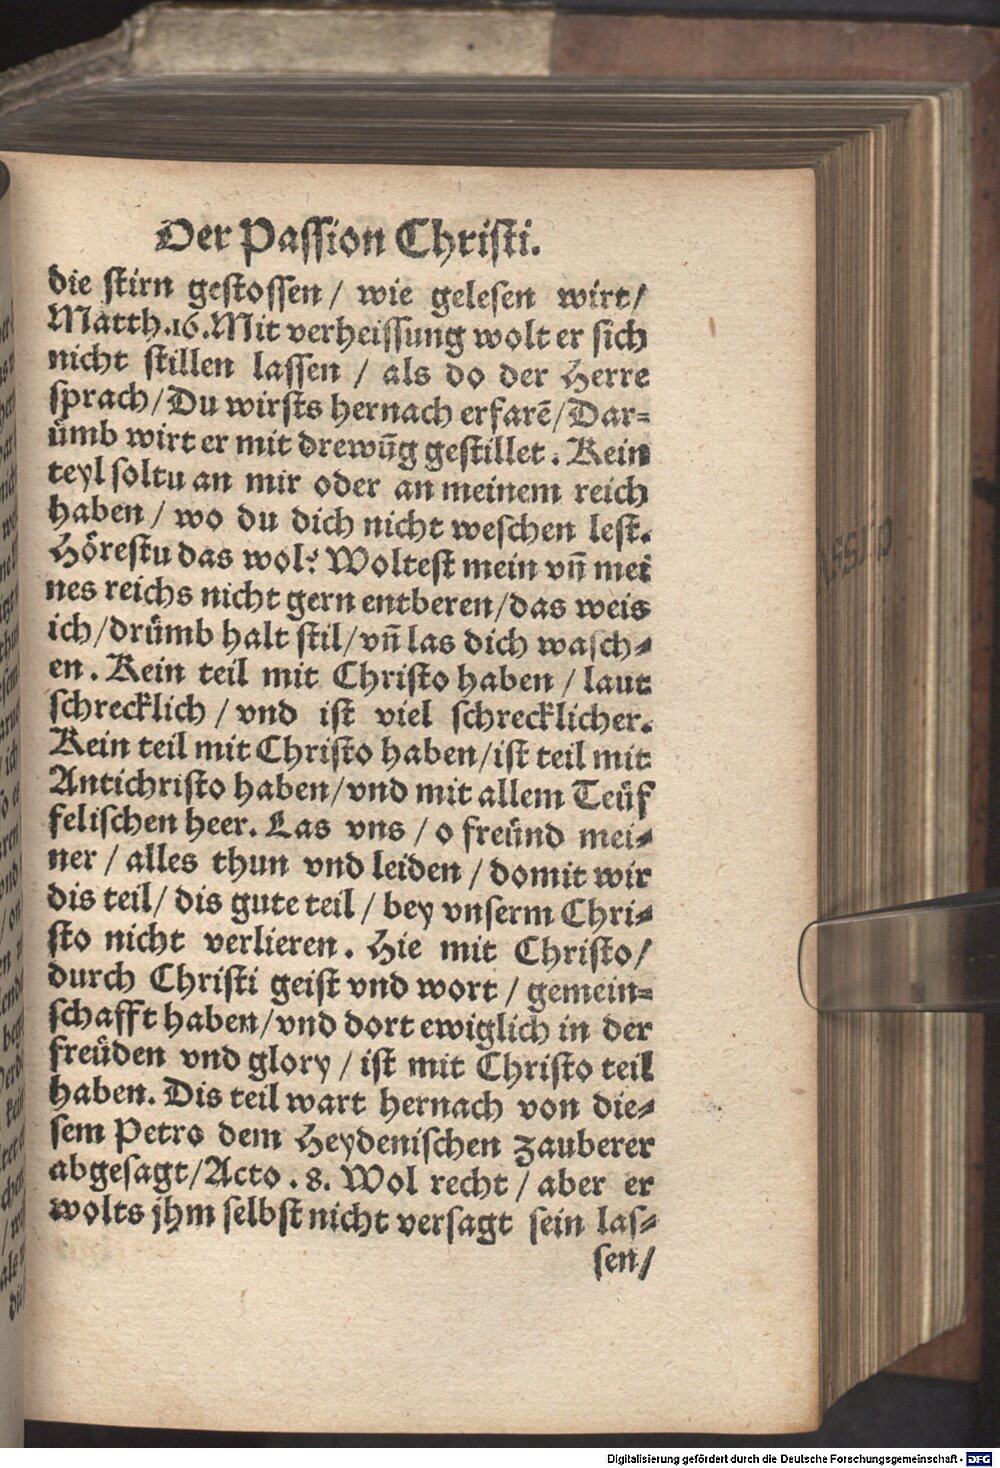 Der Passion Christi.
die stirn gestossen / wie gelesen wirt/
Matth.16.Mit verheissung wolt er sich
nicht stillen lassen / als do der Herre
sprach/Du wirsts hernach erfarē/Dar-
ümb wirt er mit drewūg gestillet. Kein
teyl soltu an mir oder an meinem reich
haben / wo du dich nicht weschen lest.
Hörestu das wol? Woltest mein vn̄ mei
nes reichs nicht gern entberen/das weis
ich/drümb halt stil/vn̄ las dich wasch-
en. Kein teil mit Christo haben / laut
schrecklich / vnd ist viel schrecklicher.
Kein teil mit Christo haben/ist teil mit
Antichristo haben/vnd mit allem Teüf
felischen heer. Las vns / o freünd mei-
ner / alles thun vnd leiden / domit wir
dis teil/ dis gute teil / bey vnserm Chri-
sto nicht verlieren. Hie mit Christo/
durch Christi geist vnd wort / gemein-
schafft haben/vnd dort ewiglich in der
freüden vnd glory / ist mit Christo teil
haben. Dis teil wart hernach von die-
sem Petro dem Heydenischen zauberer
abgesagt/Acto.8. Wol recht / aber er
wolts jhm selbst nicht versagt sein las-
sen/
Digitalisierung gefördert durch die Deutsche Forschungsgemeinschaft - DFG